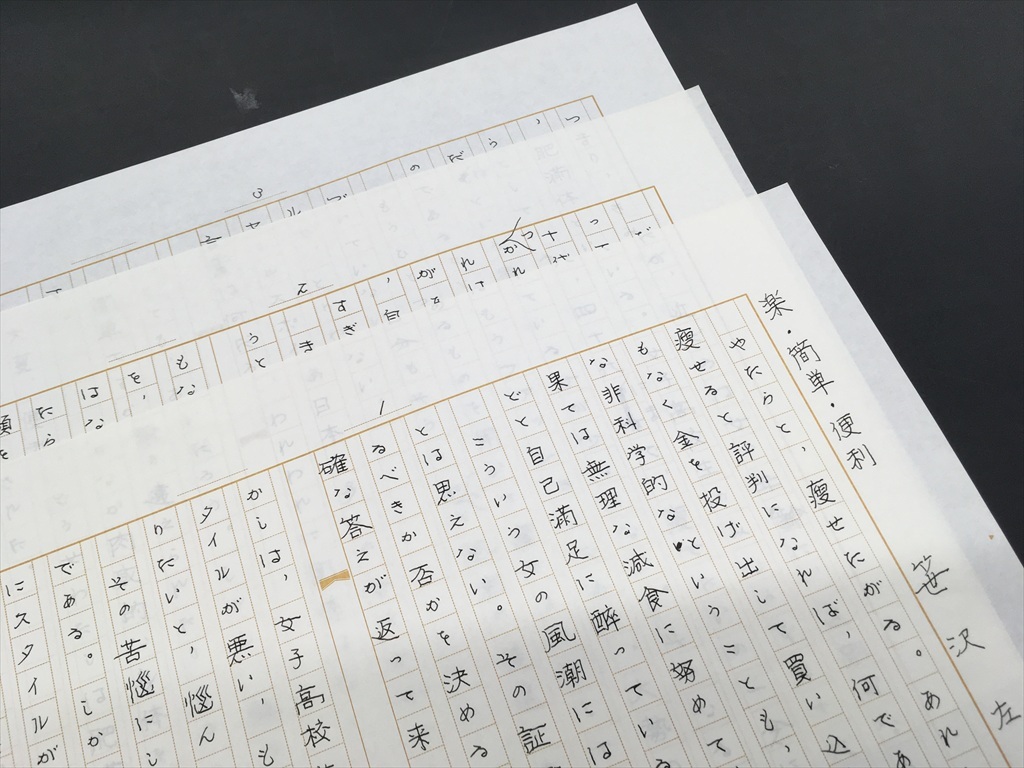 楽・簡単・便利
笹沢左
やたらと、痩せたがる。あれ
痩せると評判になれば、何であ
もなく金を投げ出して買い込
な非科学的なということも、
果ては無理な減食に努めて
どと自己満足に酔っている
こういう女の風潮には
とは思えない。その証
るべきか否かを決める
確な答えが返って来
かしは、女子高校
タイルが悪い、も
りたいと、悩ん
その苦悩にし
である。しか
にスタイルが
1
れは
、自
すぎ
うと
もな
を、
はな
たら
2
つ
、
う
だ
の
3